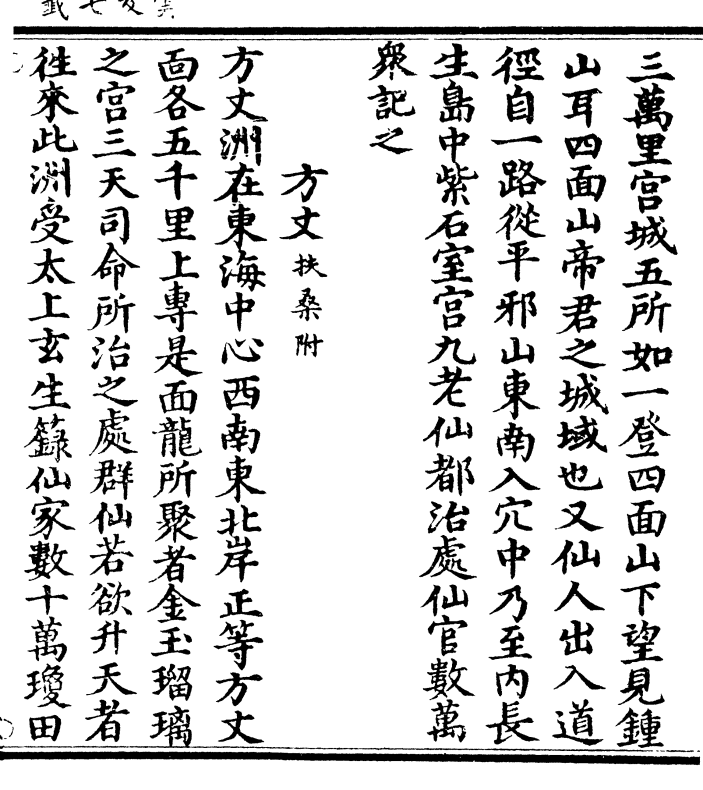 三萬里宫城五所如一登四面山下望見鍾
山耳四面山帝君之城域也又仙人出入道
徑自一路從平邪山東南入穴中乃至内長
生島中紫石室宫九老仙都治處仙官數萬
衆記之
方丈扶桑附
方丈洲在東海中心西南東北岸正等方丈
面各五千里上專是面龍所聚者金玉瑠璃
之宫三天司命所治之處群仙若欲升天者
徃來此洲受太上玄生籙仙家數十萬瓊田